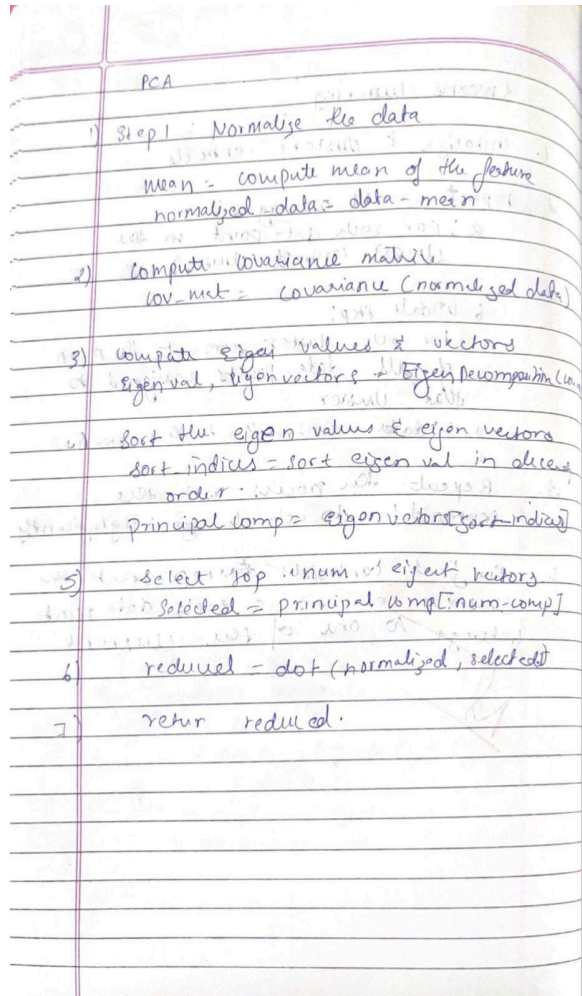 PCA
1) Step 1 Normalize the data
mean = compute mean of the feature
normalized data = data - mean
2) compute covariance matrix
cov_mat = covariance (normalized data)
3) compute Eigen values & vectors
Eigen val, eigen vectors = Eigen Decomposition (
4) Sort the eigen values & eigen vectors
sort_indices = sort eigen val in
order.
principal comp = eigen vectors [sort_indices]
5) select top num eigen vectors
Selected = principal comp[:num-comp]
6) reduced = dot (normalized, selected)
7) retur reduced.